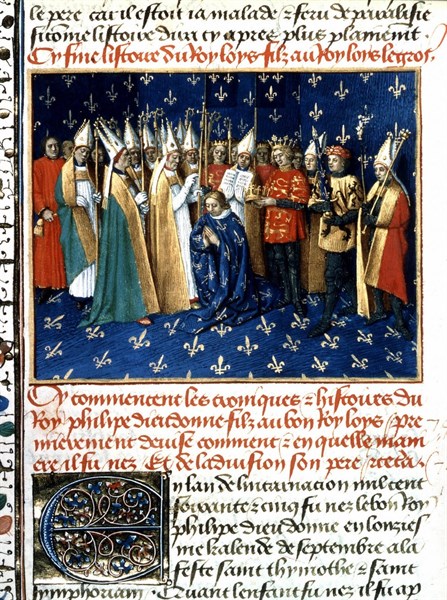 le pere car il estoit ia malade et feru de paralisie
sicome listoire dira cy apres plus plainement
Cy fine listoire du Roy loys filz au Roy loys le gros.
Cy commencent les croniques et histoires du
Roy philipe dieudonne filz au bon Roy loys pre
mierement deuise comment et en quelle mani
ere il fu nez Et de la diuision son pere
En lan de lincarnation mil cent
soixante et cinq fu nez le bon Roy
philipe dieudonne en lonzies
me kalende de septembre a la
feste saint thymothe et saint
symphorian. Quant lenfant fu nez il fu ap